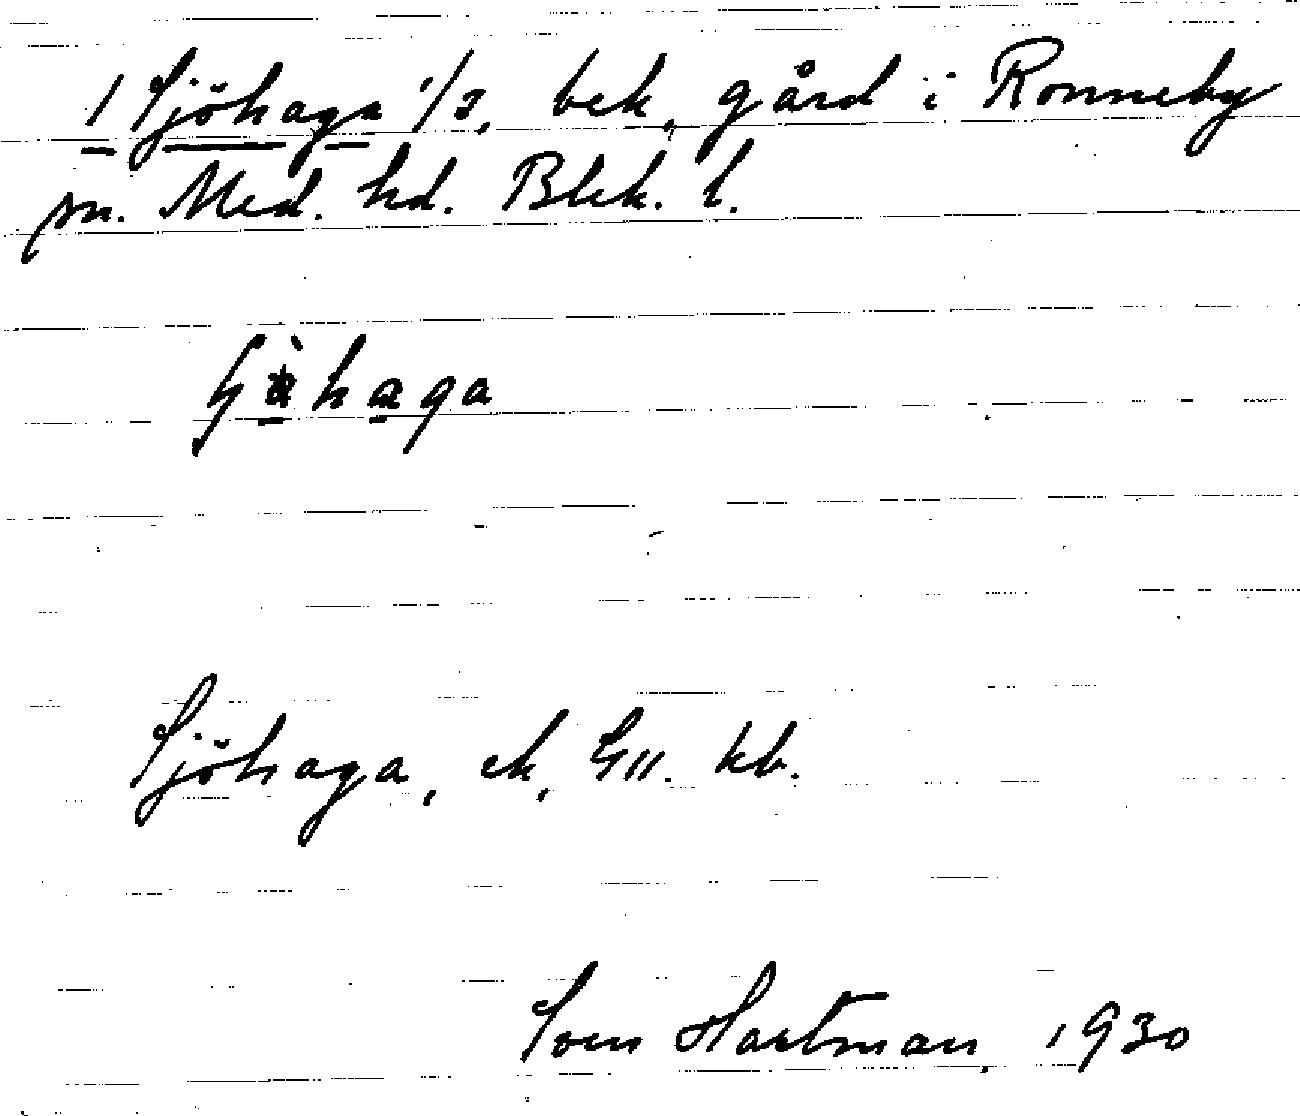 1 Sjöhaga 1/3, bek, gård i Ronneby
sn. Med. hd. Blek. l.
Sjöhaga, ek, GII. kb.
Sven Hartman, 1930